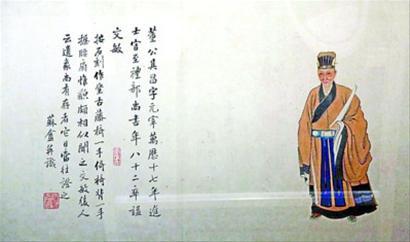 董公其昌字元宰萬曆十七年進
士官至禮部尚書年八十二卒謚
文敏
按石刻作坐古藤椅一手倚椅背一手
膝惟貌頗相似聞之文敏後人
云遺象尚有存者它日當往證之
蘇盦并識